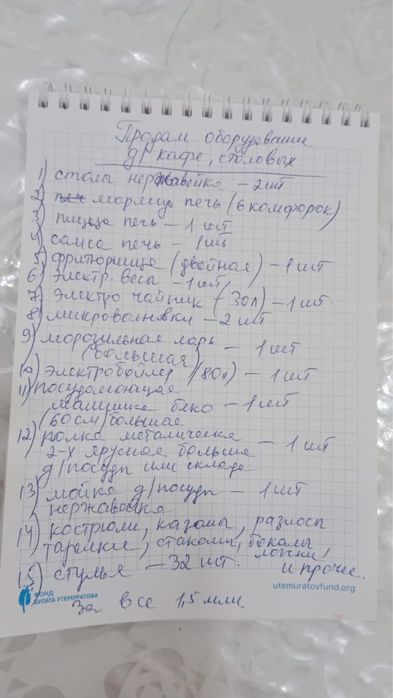 Продам оборудование
д/ кафе, столовых
1) столы нержавейка – 2 шт
2) мармиц печь (6 комфорок)
3) пицца печь – 1 шт
4) самса печь – 1 шт
5) фритюрница (двойная) – 1 шт
6) электр. веса – 1 шт
7) электро чайник (– 30 л) – 1 шт
8) микроволновки – 2 шт
9) морозильная ларь
(большая) – 1 шт
10) электробойлер (80 л) – 1 шт
11) посудомоющая
машинка беко – 1 шт
/60 см/большая
12) полка металическа – 1 шт
2-х ярусная больша
д/посуды или склада
13) мойка д/посуды – 1 шт
нержавейка
14) кострюли, казаны, разносы
тарелки, стаканы, бокалы
ложки,
15) стулья – 32 шт. и прочее.
За все 1,5 млн.
ФОНД
БУЛАТА УТЕМУРАТОВА
utemuratovfund.org